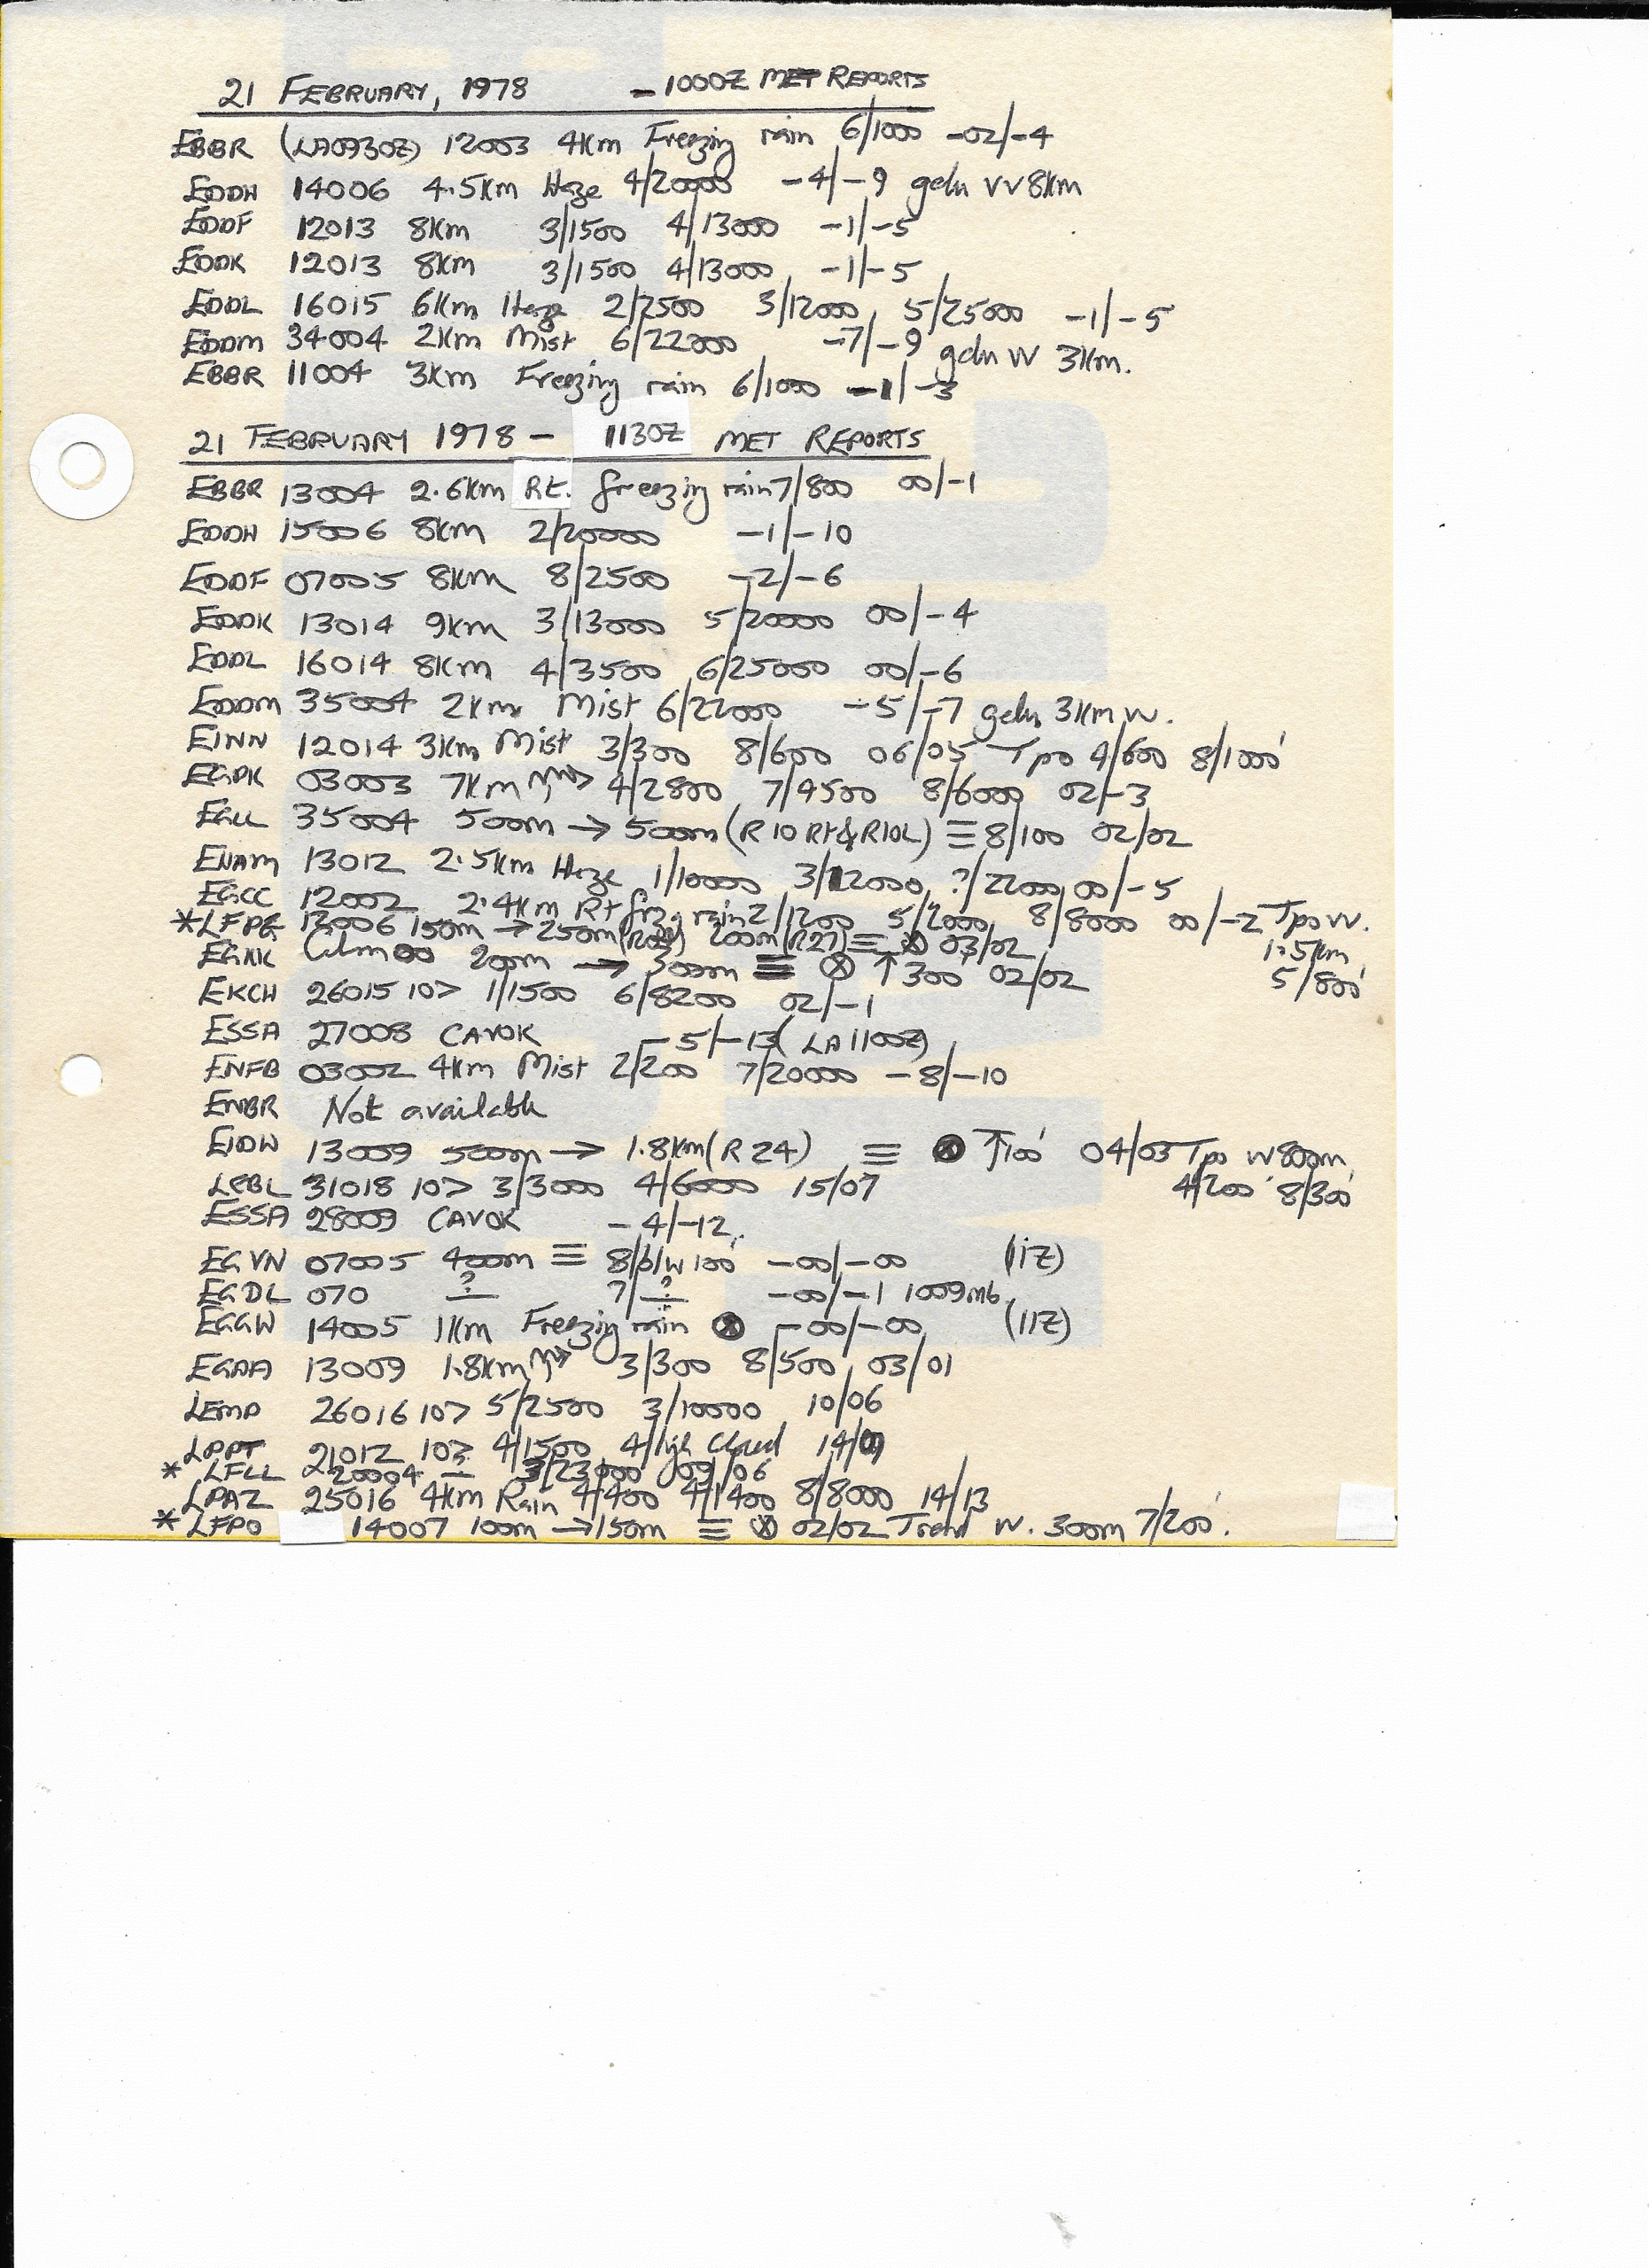 21 FEBRUARY, 1978 - 1000Z MET REPORTS
EBBR (LA0930Z) 12003 4Km Freezing rain 6/1000 -02/-4
EDDH 14006 4.5Km Haze 4/20000 -4/-9 gdu VV 8Km
EDDF 12013 8Km 3/1500 4/13000 -1/-5
EDDK 12013 8Km 3/1500 4/13000 -1/-5
EDDL 16015 6Km Haze 2/2500 3/12000 5/25000 -1/-5
EDDM 34004 2Km Mist 6/22000 -7/-9 gdu VV 3Km.
EBBR 11004 3Km Freezing rain 6/1000 -1/-3
21 FEBRUARY 1978 - 1130Z MET REPORTS
EBBR 13004 2.6Km Rt. freezing rain 7/800 00/-1
EDDH 15006 8Km 2/20000 -1/-10
EDDF 07005 8Km 8/2500 -2/-6
EDDK 13014 9Km 3/13000 5/20000 00/-4
EDDL 16014 8Km 4/3500 6/25000 00/-6
EDDM 35004 2Km Mist 6/22000 -5/-7 3Km VV.
EINN 12014 3Km Mist 3/300 8/600 06/05 Tpo 4/600 8/1000'
EGPK 03003 7Km 4/2800 7/4500 8/6000 02/-3
EGLL 35004 500m → 500m (R10 Rt & R10L) ≡ 8/100 02/02
EHAM 13012 2.5Km Haze 1/10000 3/12000 ?/22000 00/-5
EGCC 12002 2.4Km Rt frz. rain 2/1200 5/2000 8/8000 00/-2 Tpo VV.
1.5Km
5/800'
*LFPG 12006 150m → 250m 200m (R27) ≡ ⊗ 03/02
EGKK Calm 00 200m → 300m ≡ ⊗ ↑ 300 02/02
EKCH 26015 10> 1/1500 6/8200 02/-1
ESSA 27008 CAVOK -5/-13 (LA 1100Z)
ENFB 03002 4Km Mist 2/200 7/20000 -8/-10
ENBR Not available
EIDW 13009 500m → 1.8Km (R24) ≡ ⊗ ↑100' 04/03 Tpo VV 800m
4/200 8/300'
LEBL 31018 10> 3/3000 4/6000 15/07
ESSA 28009 CAVOK -4/-12
EGVN 07005 400m ≡ 8/blw 100' -00/-00 (11Z)
EGDL 070 ? ?/? -00/-1 1009mb
EGGW 14005 1Km Freezing rain ⊗ -00/-00 (11Z)
EGAA 13009 1.8Km 3/300 8/500 03/01
LEMD 26016 10> 5/2500 3/10000 10/06
LPPT 21012 10> 4/1500 4/High Cloud 14/09
* LFLL 20004 - 3/23000 09/06
LPAZ 25016 4Km Rain 4/400 4/1400 8/8000 14/13
*LFPO 14007 100m → 150m ≡ ⊗ 02/02 Trend VV. 300m 7/200'.